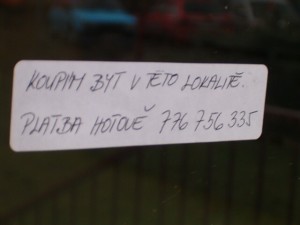 KOUPÍM BYT V TÉTO LOKALITĚ.
PLATBA HOTOVĚ 776 756 335